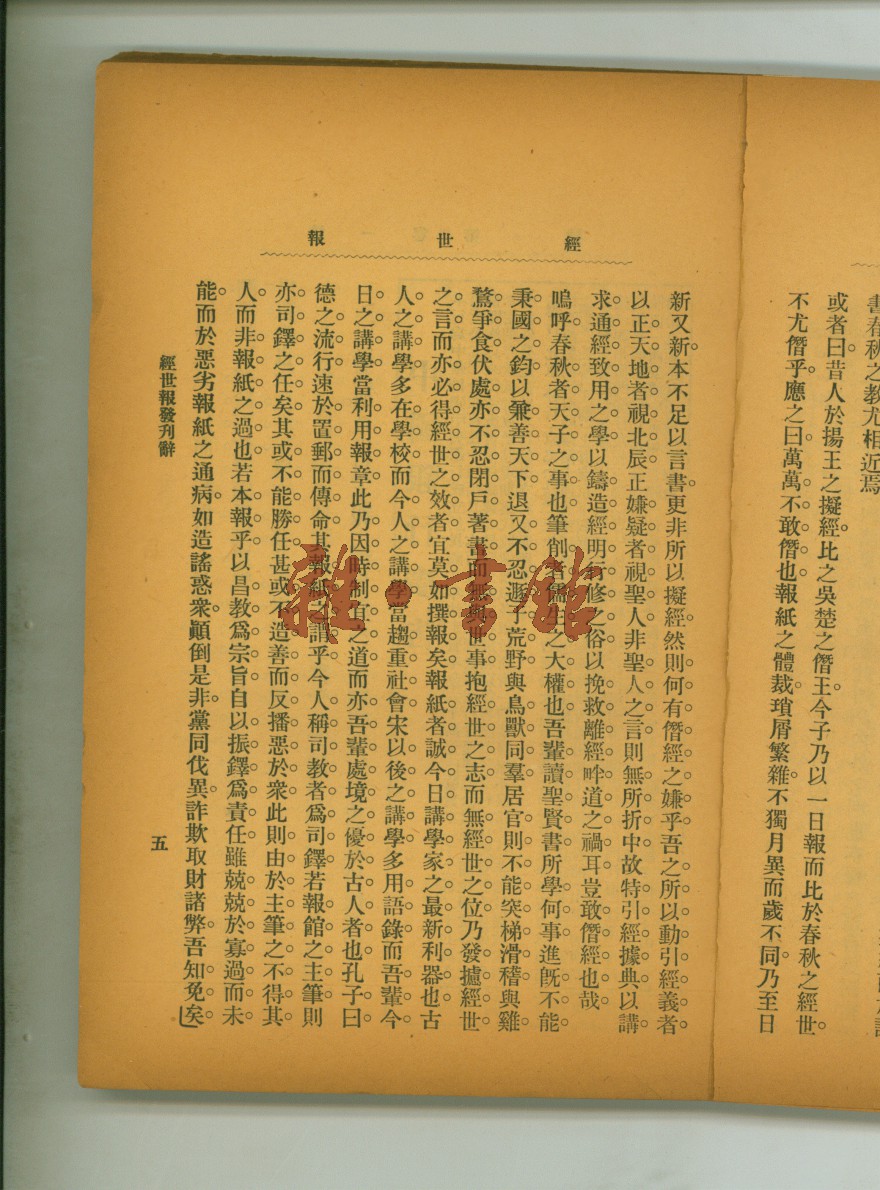 書春秋之教尤相近焉
或者曰昔人於揚王之擬經比之吳楚之僭王今子乃以一日報而比於春秋之經世
不尤僭乎應之曰萬萬不敢僭也報紙之體裁瑣屑繁雜不獨月異而歲不同乃至日
經世報
新又新本不足以言書更非所以擬經然則何有僭經之嫌乎吾之所以動引經義者
以正天地者視北辰正嫌疑者視聖人非聖人之言則無所折中故特引經據典以講
求通經致用之學以鑄造經明行修之俗以挽救離經畔道之禍耳豈敢僭經也哉
嗚呼春秋者天子之事也筆削者儒生之大權也吾輩讀聖賢書所學何事進旣不能
秉國之鈞以兼善天下退又不忍遯于荒野與鳥獸同羣居官則不能突梯滑稽與雞
鶩爭食伏處亦不忍閉戶著書而無與世事抱經世之志而無經世之位乃發攄經世
之言而亦必得經世之效者宜莫如撰報矣報紙者誠今日講學家之最新利器也古
人之講學多在學校而今人之講學當趨重社會宋以後之講學多用語錄而吾輩今
日之講學當利用報章此乃因時制宜之道而亦吾輩處境之優於古人者也孔子曰
德之流行速於置郵而傳命其報紙之謂乎今人稱司教者爲司鐸若報館之主筆則
亦司鐸之任矣其或不能勝任甚或不造善而反播惡於衆此則由於主筆之不得其
人而非報紙之過也若本報乎以昌教爲宗旨自以振鐸爲責任雖兢兢於寡過而未
能而於惡劣報紙之通病如造謠惑衆顚倒是非黨同伐異詐欺取財諸弊吾知免矣
經世報發刊辭
五
雜·書館